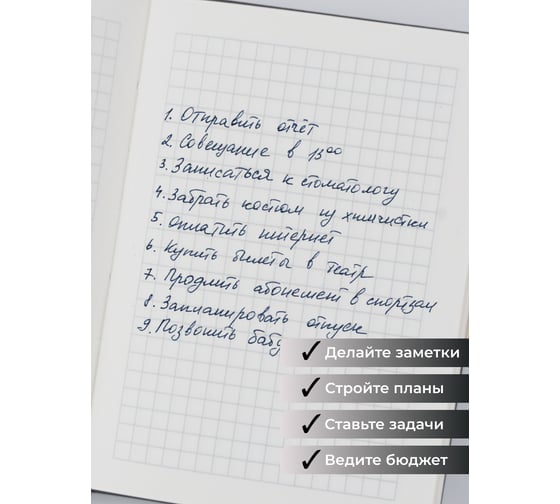 1. Отправить отчёт
2. Совещание в 15⁰⁰
3. Записаться к стоматологу
4. Забрать костюм из химчистки
5. Оплатить интернет
6. Купить билеты в театр
7. Продлить абонемент в спортзал
8. Запланировать отпуск
9. Позвонить
✓ Делайте заметки
✓ Стройте планы
✓ Ставьте задачи
✓ Ведите бюджет